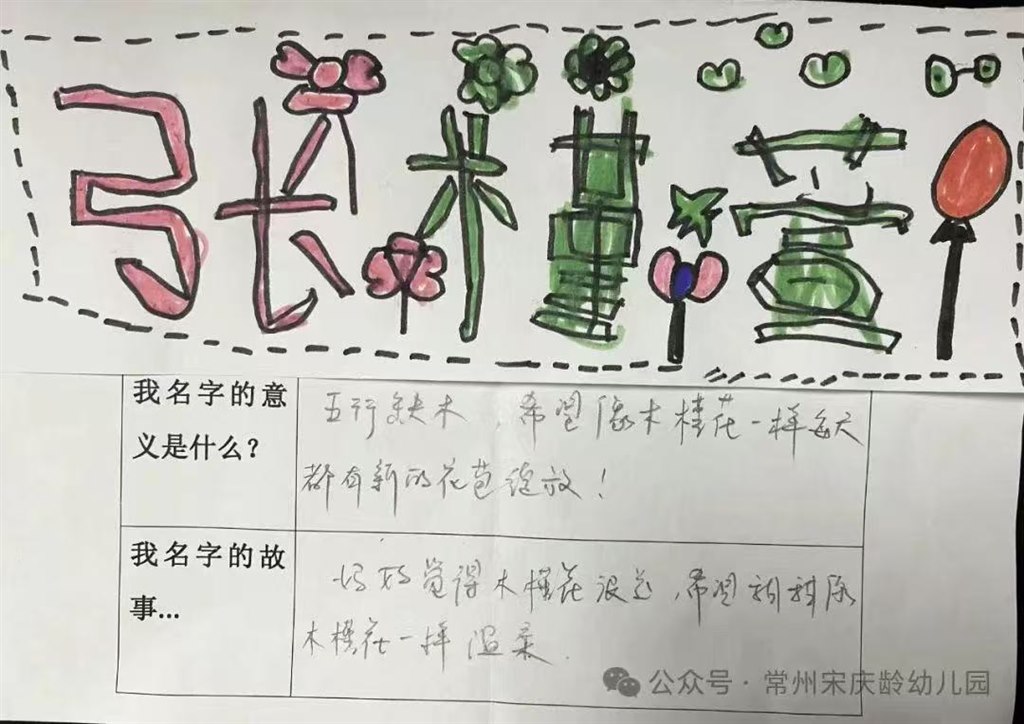 张槿萱
我名字的意
义是什么？
五行缺木，希望像木槿花一样每天
都有新的花苞绽放！
我名字的故
事...
妈妈觉得木槿花很，希望像
木槿花一样温柔.
公众号·常州宋庆龄幼儿园